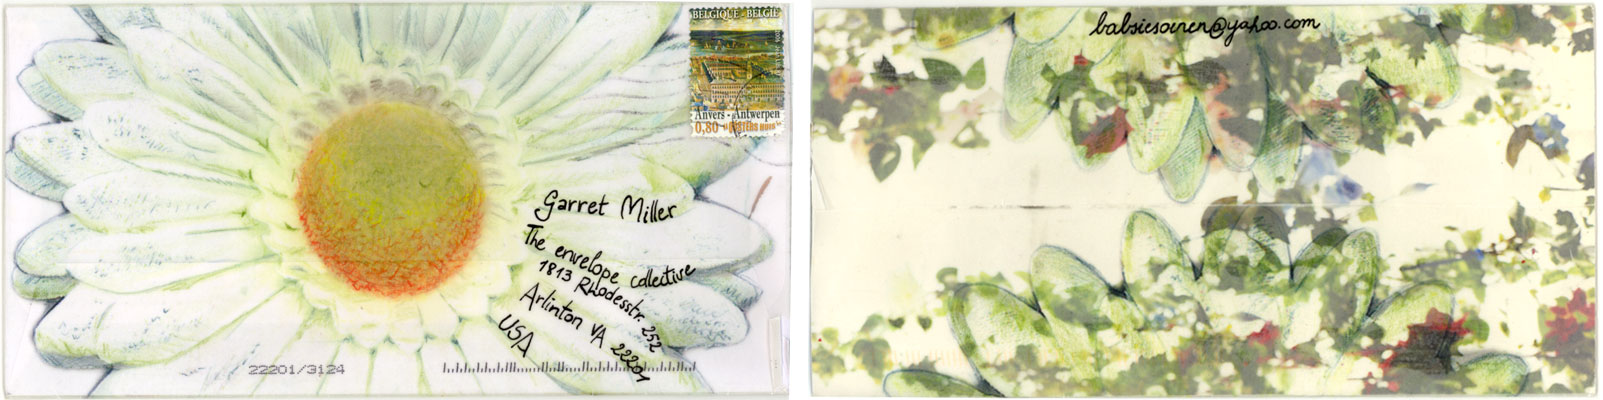 BELGIQUE - BELGIË
Anvers - Antwerpen
0,80
Garret Miller
The envelope collective
1813 Rhodesstr. 252
Arlinton VA 22201
USA
22201/3124
babsiesoinen@yahoo.com